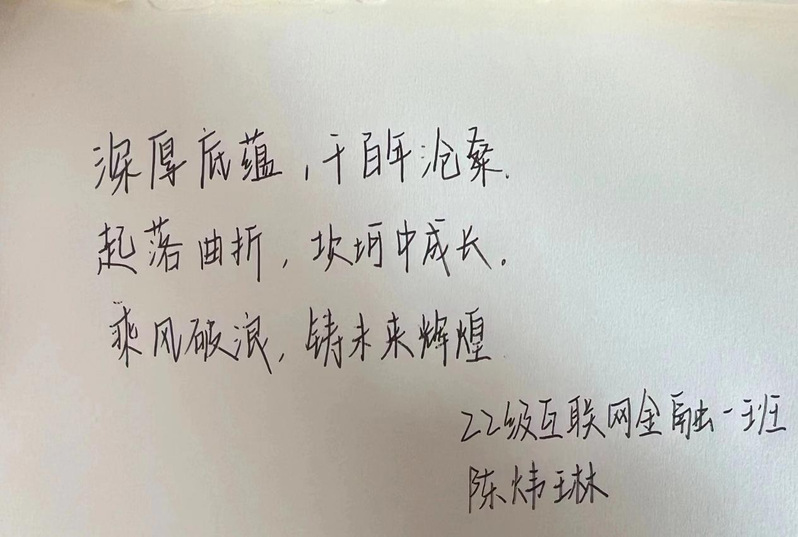 深厚底蕴，千百年沧桑.
起落曲折，坎坷中成长.
乘风破浪，铸未来辉煌
22级互联网金融一班
陈炜琳